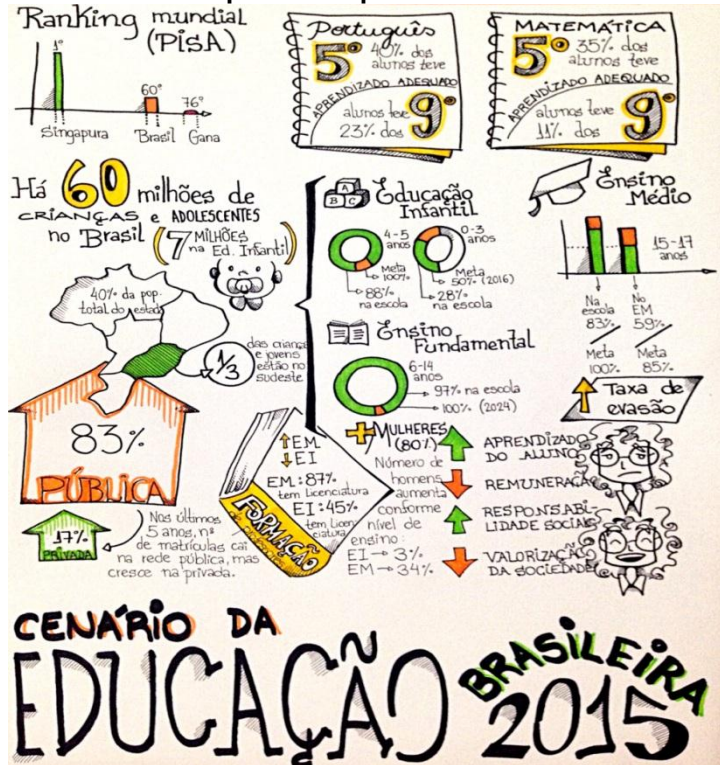 Ranking mundial
(PISA)
1º
60º
76º
Singapura Brasil Gana
Português
5º 40% dos
alunos teve
APRENDIZADO ADEQUADO
alunos teve
23% dos 9º
MATEMÁTICA
5º 35% dos
alunos teve
APRENDIZADO ADEQUADO
alunos teve
11% dos 9º
Há 60 milhões de
CRIANÇAS e ADOLESCENTES
no Brasil (7 MILHÕES
na Ed. Infantil)
40% da pop.
total do estado
1/3
das crianças
e jovens
estão no
sudeste
83%
PÚBLICA
17%
PRIVADA
Nos últimos
5 anos, nº
de matrículas cai
na rede pública, mas
cresce na privada.
A
B C
Educação
Infantil
4-5
anos
Meta
100%
88%
na escola
0-3
anos
Meta
50% (2016)
28%
na escola
Ensino
Fundamental
6-14
anos
97% na escola
100% (2024)
Ensino
Médio
15-17
anos
Na
escola
83%
Meta
100%
No
EM
59%
Meta
85%
Taxa de
evasão
EM
EI
EM: 87%
tem Licenciatura
EI: 45%
tem Licen
ciatura
FORMAÇÃO
+ MULHERES
(80%)
Número de
homens
aumenta
conforme
nível de
ensino:
EI → 3%
EM → 34%
APRENDIZADO
DO ALUNO
REMUNERAÇÃO
RESPONSABI-
LIDADE SOCIAL
VALORIZAÇÃO
DA SOCIEDADE
CENÁRIO DA
EDUCAÇÃO BRASILEIRA
2015